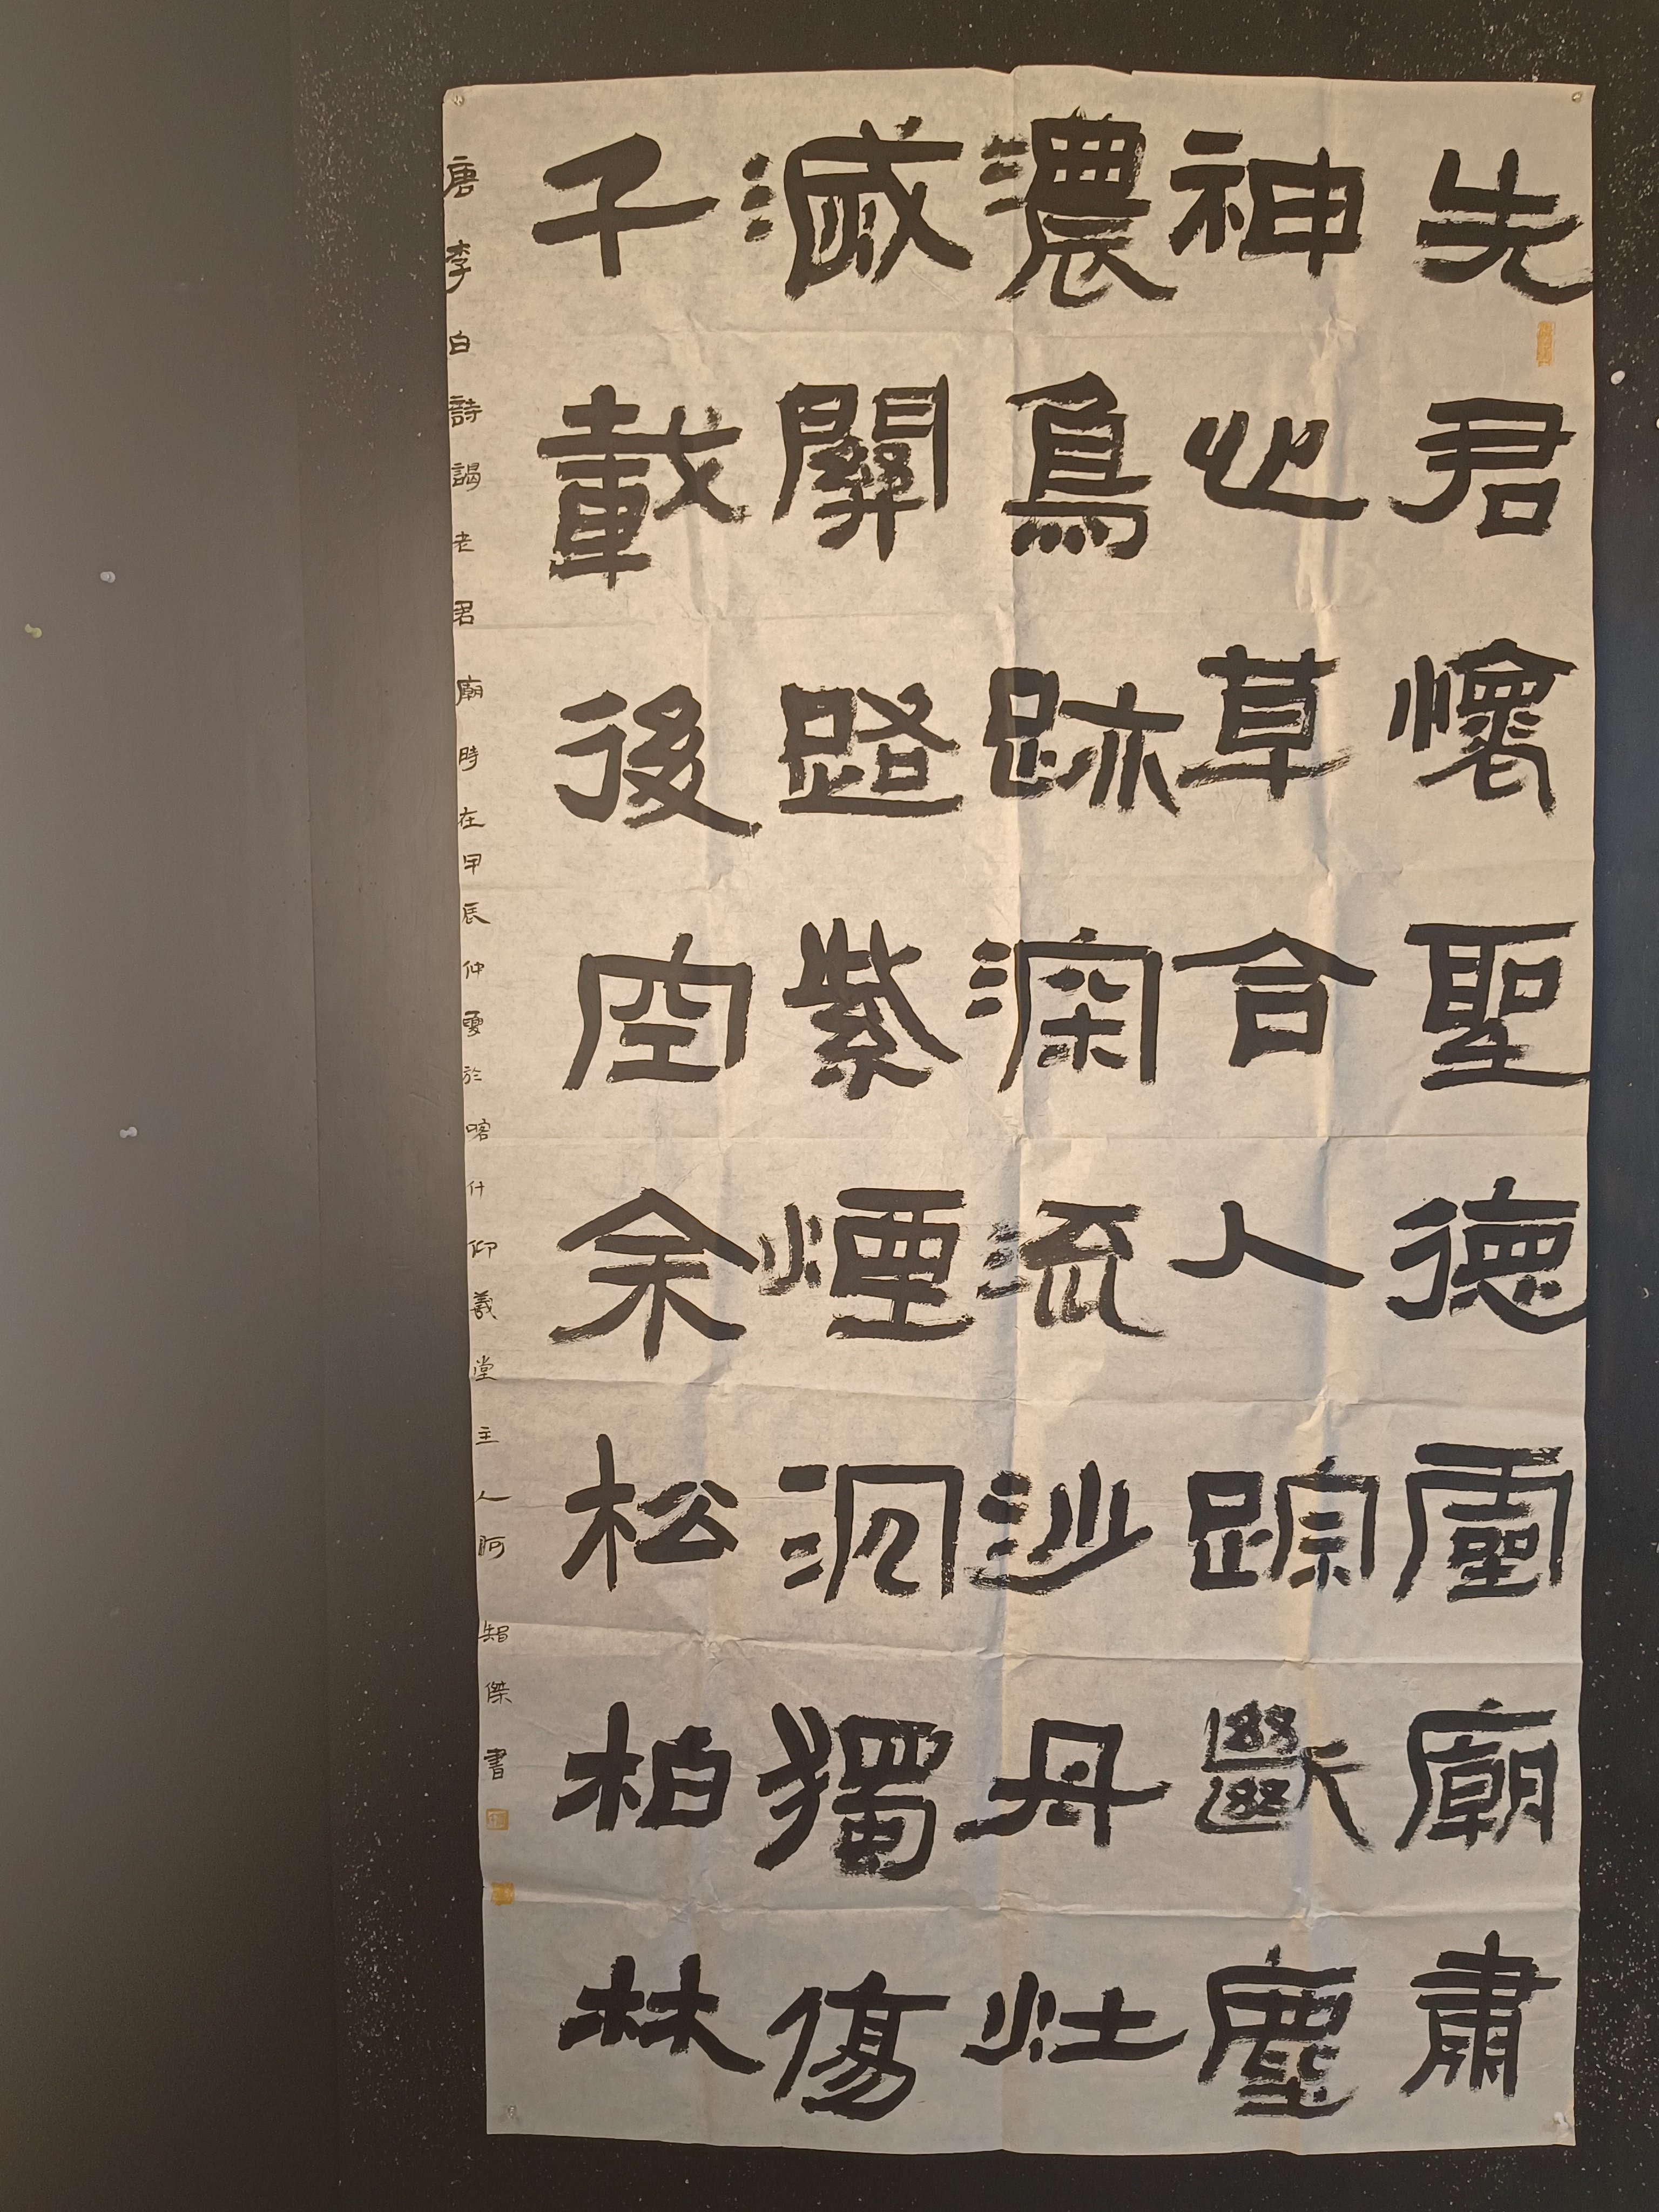 先君懷聖德靈廟肅
神心草合人踪斷塵
濃鳥跡深流沙丹灶
滅關路紫煙沉獨傷
千載後空余松柏林
唐李白詩謁老君廟時在甲辰仲夏於喀什仰羲堂主人阿智傑書